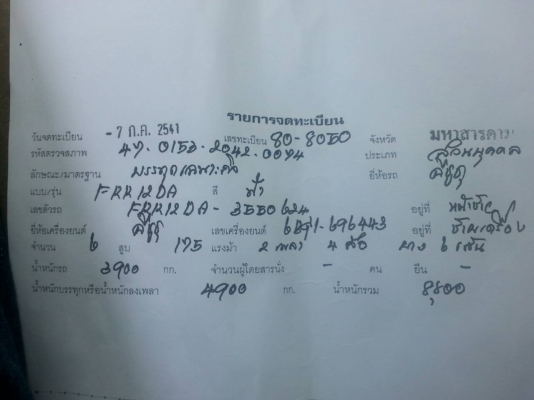 รายการจดทะเบียน
วันจดทะเบียน - 7 ก.ค. 2541 เลขทะเบียน 80-8050 จังหวัด มหาสารคาม
รหัสตรวจสภาพ 47.0150.2042.0074 ประเภท ส่วนบุคคล
ลักษณะ/มาตรฐาน บรรทุก ยี่ห้อรถ อีซูซุ
แบบ/รุ่น FRR12DA สี ฟ้า
เลขตัวรถ FRR12DA-3550624 อยู่ที่
ยี่ห้อเครื่องยนต์ อีซูซุ เลขเครื่องยนต์ 6BF1-696443 อยู่ที่ ข้างเครื่อง
จำนวน 6 สูบ 175 แรงม้า 2 เพลา 4 ล้อ ยาง 6 เส้น
น้ำหนักรถ 3900 กก. จำนวนผู้โดยสารนั่ง - คน ยืน -
น้ำหนักบรรทุกหรือน้ำหนักลงเพลา 4900 กก. น้ำหนักรวม 8,800